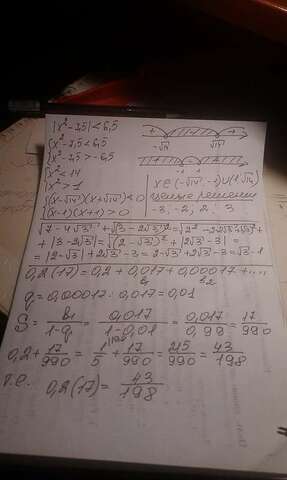 |x²-7,5|<6,5
{x²-7,5<6,5
{x²-7,5>-6,5
{x²<14
{x²>1
{(x-√14)(x+√14)<0
{(x-1)(x+1)>0
-√14 √14
-1 1
x∈(-√14; -1)∪(1; √14)
целые решения
-3, -2, 2, 3
√7-4√3 + √(3-2√3)² = √2²-2·2√3+√3² +
+ |3-2√3| = √(2-√3)² + |2√3-3| =
= |2-√3| + 2√3-3 = 2-√3+2√3-3 = √3-1
0,2(17) = 0,2 + 0,017 + 0,00017 + ....
b₁ b₂
q = 0,00017 : 0,017 = 0,01
S = b₁/1-q = 0,017/1-0,01 = 0,017/0,99 = 17/990
0,2 + 17/990 = 1/5 + 17/990 = 215/990 = 43/198
т.е. 0,2(17) = 43/198